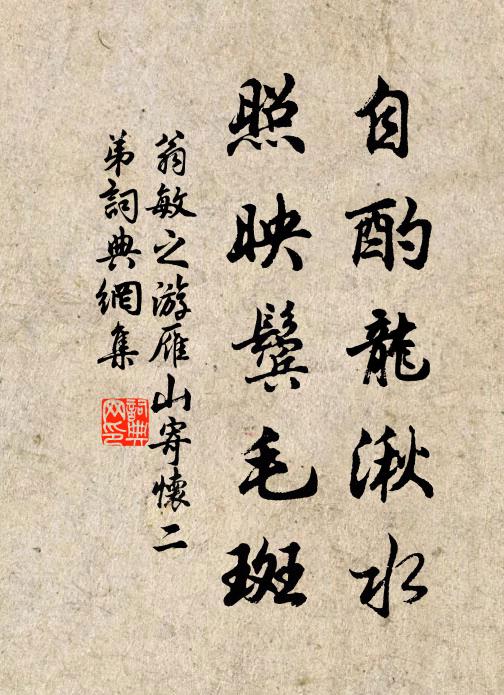 自酌龍湫水
照映鬢毛斑
翁敏之游雁山寄懷二
弟詞典網集
詞典
网印